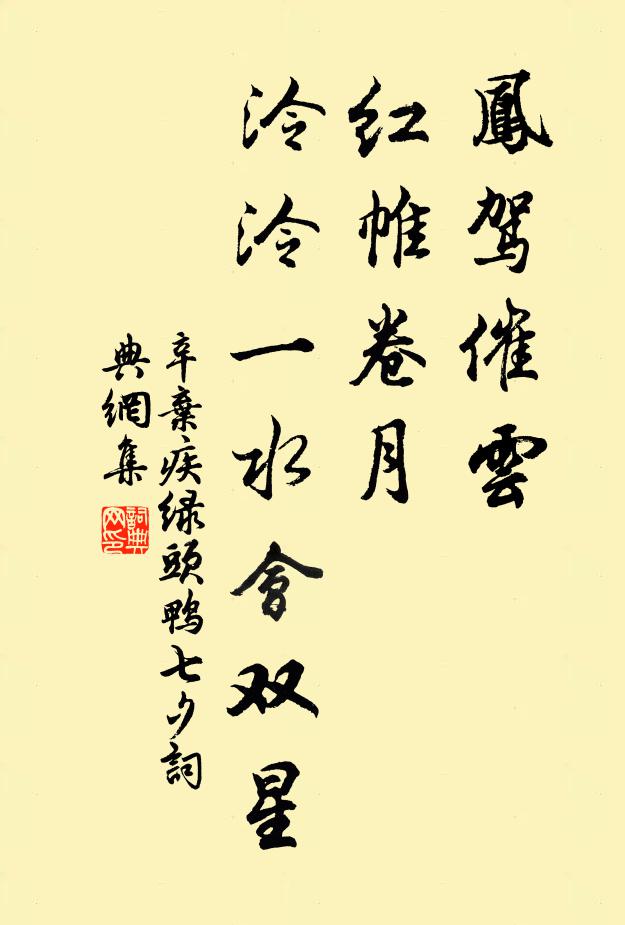 鳳駕催雲
紅帷卷月
泠泠一水會双星
辛棄疾绿頭鴨七夕詞
典網集
詞典
网印